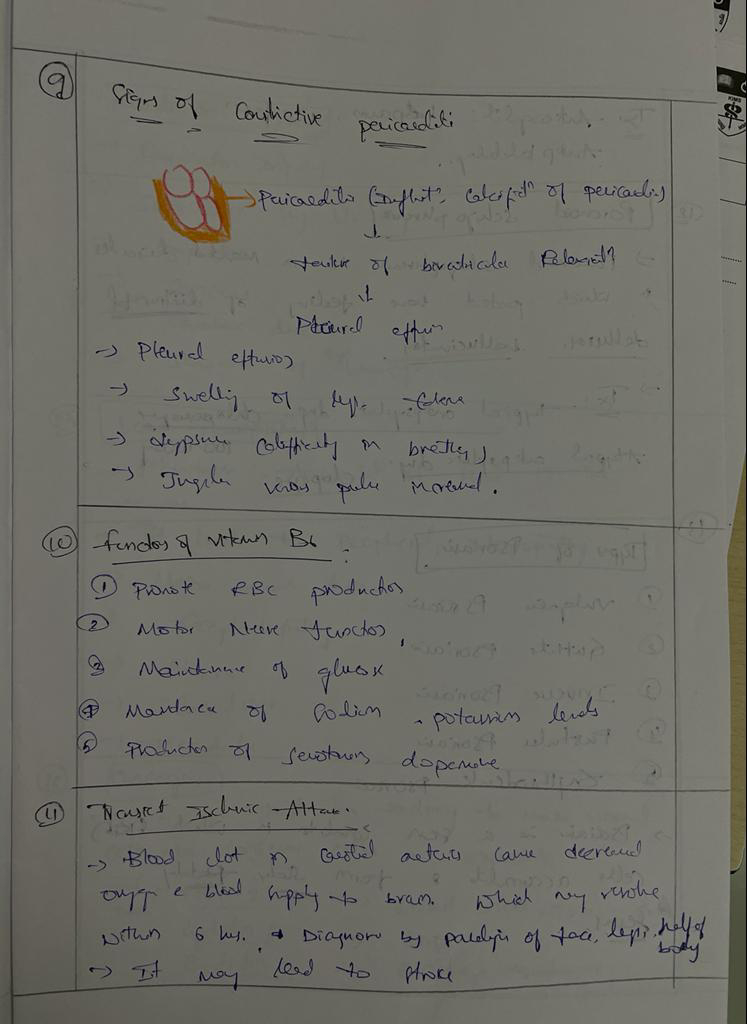 9
Signs of Constrictive pericarditi
→ Pericarditis (Inflmtn, Calcifictn of pericardis)
↓
failure of biventricular Relaxatn
↓
Pleural effusn
→ Pleural effusion
→ Swelling of legs - Edema
→ Dyspnea (difficulty in breathing)
→ Jugular venous pulse increased.
10 functions of vitamin B6 :
① Promote RBC production
② Motor Nerve function,
③ Maintenance of glucose
④ Maintance of Sodium, potassium levels
⑤ Production of serotonin dopamine
11 Transient Ischemic Attack.
→ Blood clot in Carotid arteries cause decreased
oxygen & blood supply to brain. Which may resolve
within 6 hrs. → Diagnose by paralysis of face, legs, half of body
→ It may lead to stroke